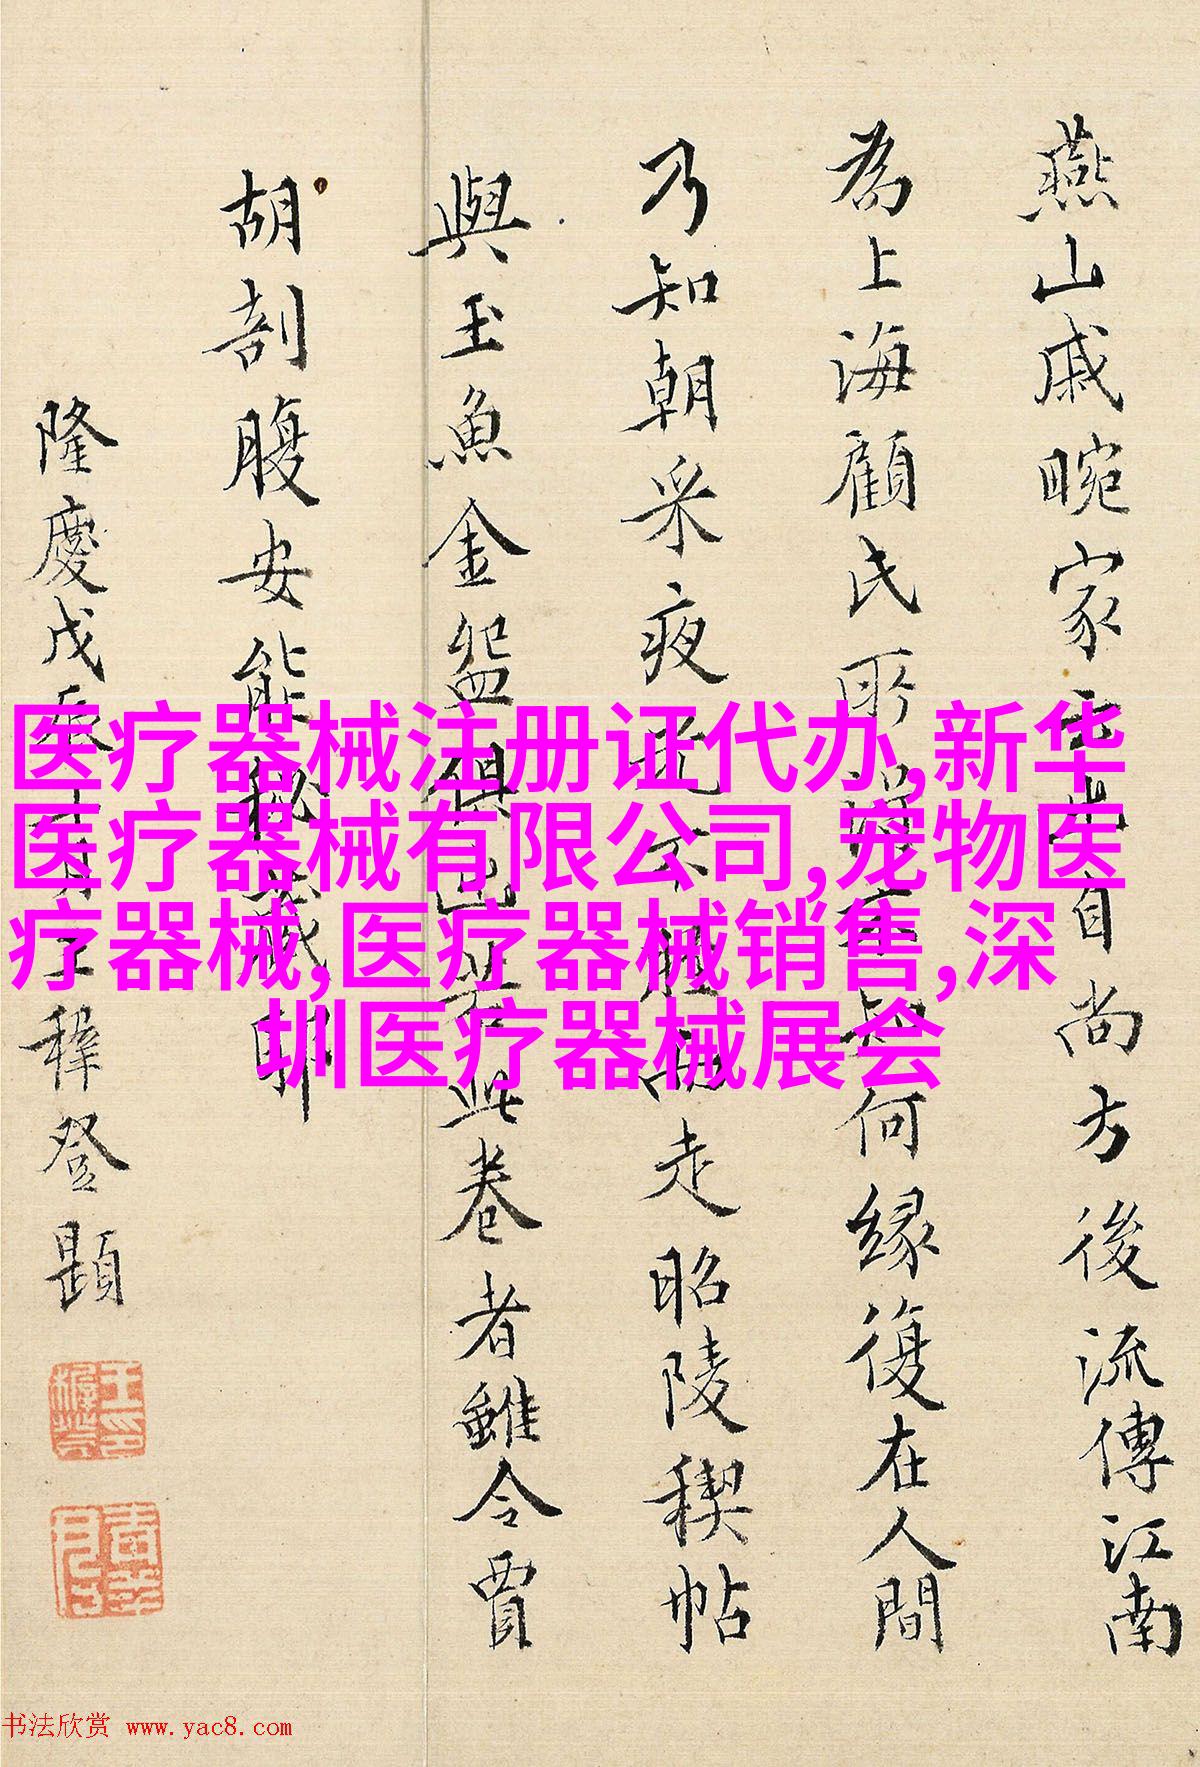 燕山戚畹家云出自尚方後流傳江南
為上海顧氏所得不知何緣復在人間
乃知朝采夜光不脛而走昭陵稧帖
與玉魚金盌俱出若此卷者雖令賈
胡剖腹安能秘藏耶
隆慶戊辰王穉登題
医疗器械注册证代办,新华
医疗器械有限公司,宠物医
疗器械,医疗器械销售,深
圳医疗器械展会
书法欣赏 www.yac8.com